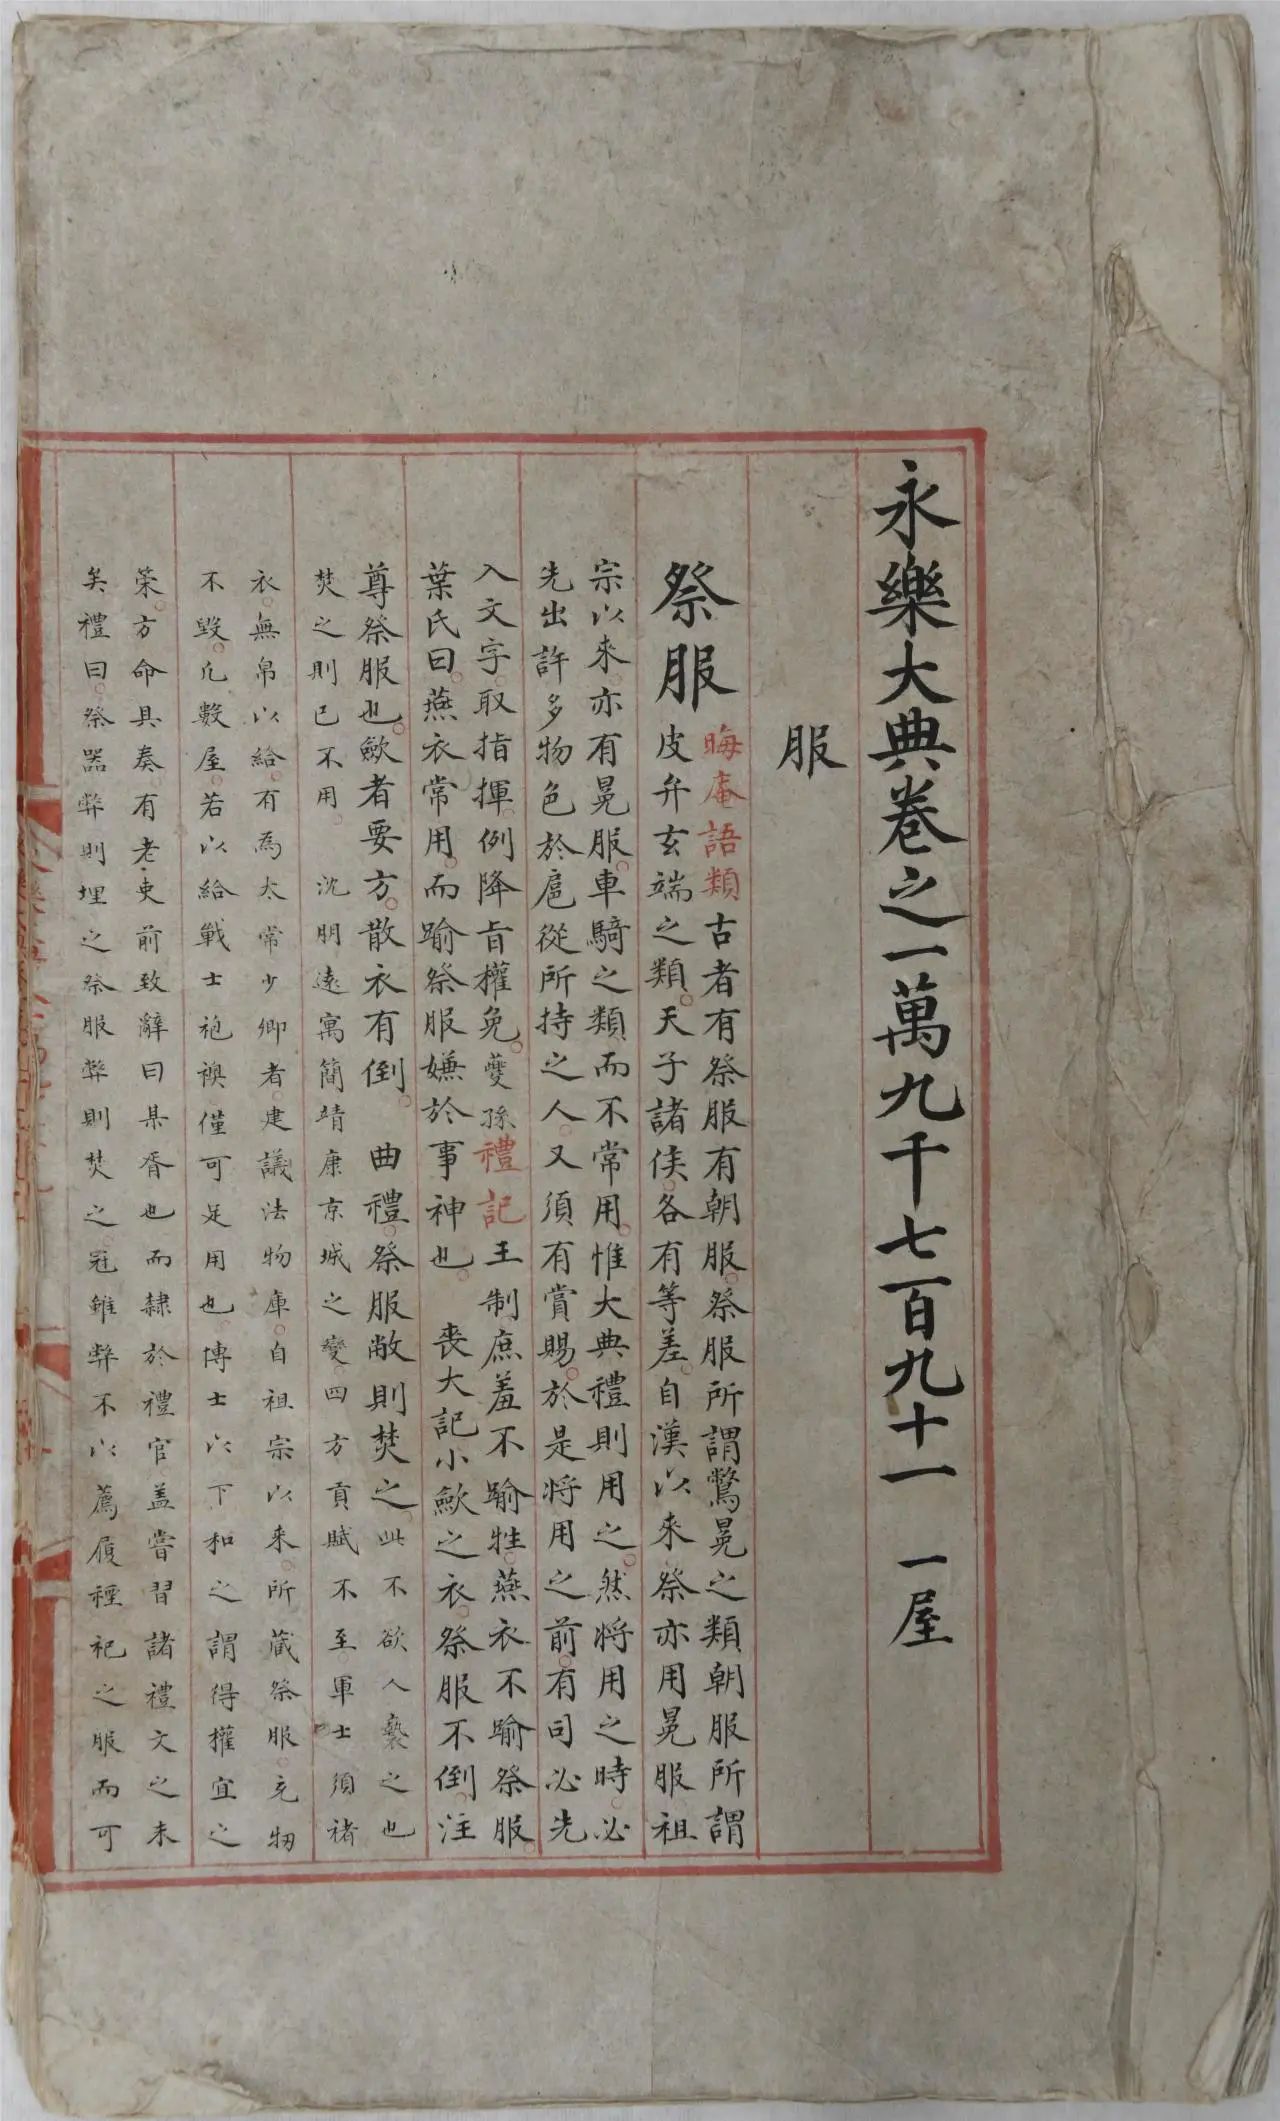 永樂大典卷之一萬九千七百九十一 一屋
服
祭服
晦庵語類古者有祭服有朝服祭服所謂鷩冕之類朝服所謂
皮弁玄端之類天子諸侯各有等差自漢以來祭亦用冕服祖
宗以來亦有冕服車騎之類而不常用惟大典禮則用之然將用之時必
先出許多物色於扈從所持之人又須有賞賜於是將用之前有司必先
入文字取指揮例降旨權免夔孫禮記王制庶羞不踰牲燕衣不踰祭服
葉氏曰燕衣常用而踰祭服嫌於事神也 喪大記小歛之衣祭服不倒注
尊祭服也歛者要方散衣有倒 曲禮祭服敝則焚之此不欲人褻之也
焚之則已不用 沈明遠寓簡靖康京城之變四方貢賦不至軍士須褚
衣無帛以給有為太常少卿者建議法物庫自祖宗以來所藏祭服充牣
不毀凡數屋若以給戰士袍襖僅可足用也博士以下和之謂得權宜之
策方命具奏有老吏前致辭曰某胥也而隸於禮官盖嘗習諸禮文之末
矣禮曰祭器弊則埋之祭服弊則焚之冠雖弊不以薦履種祀之服而可